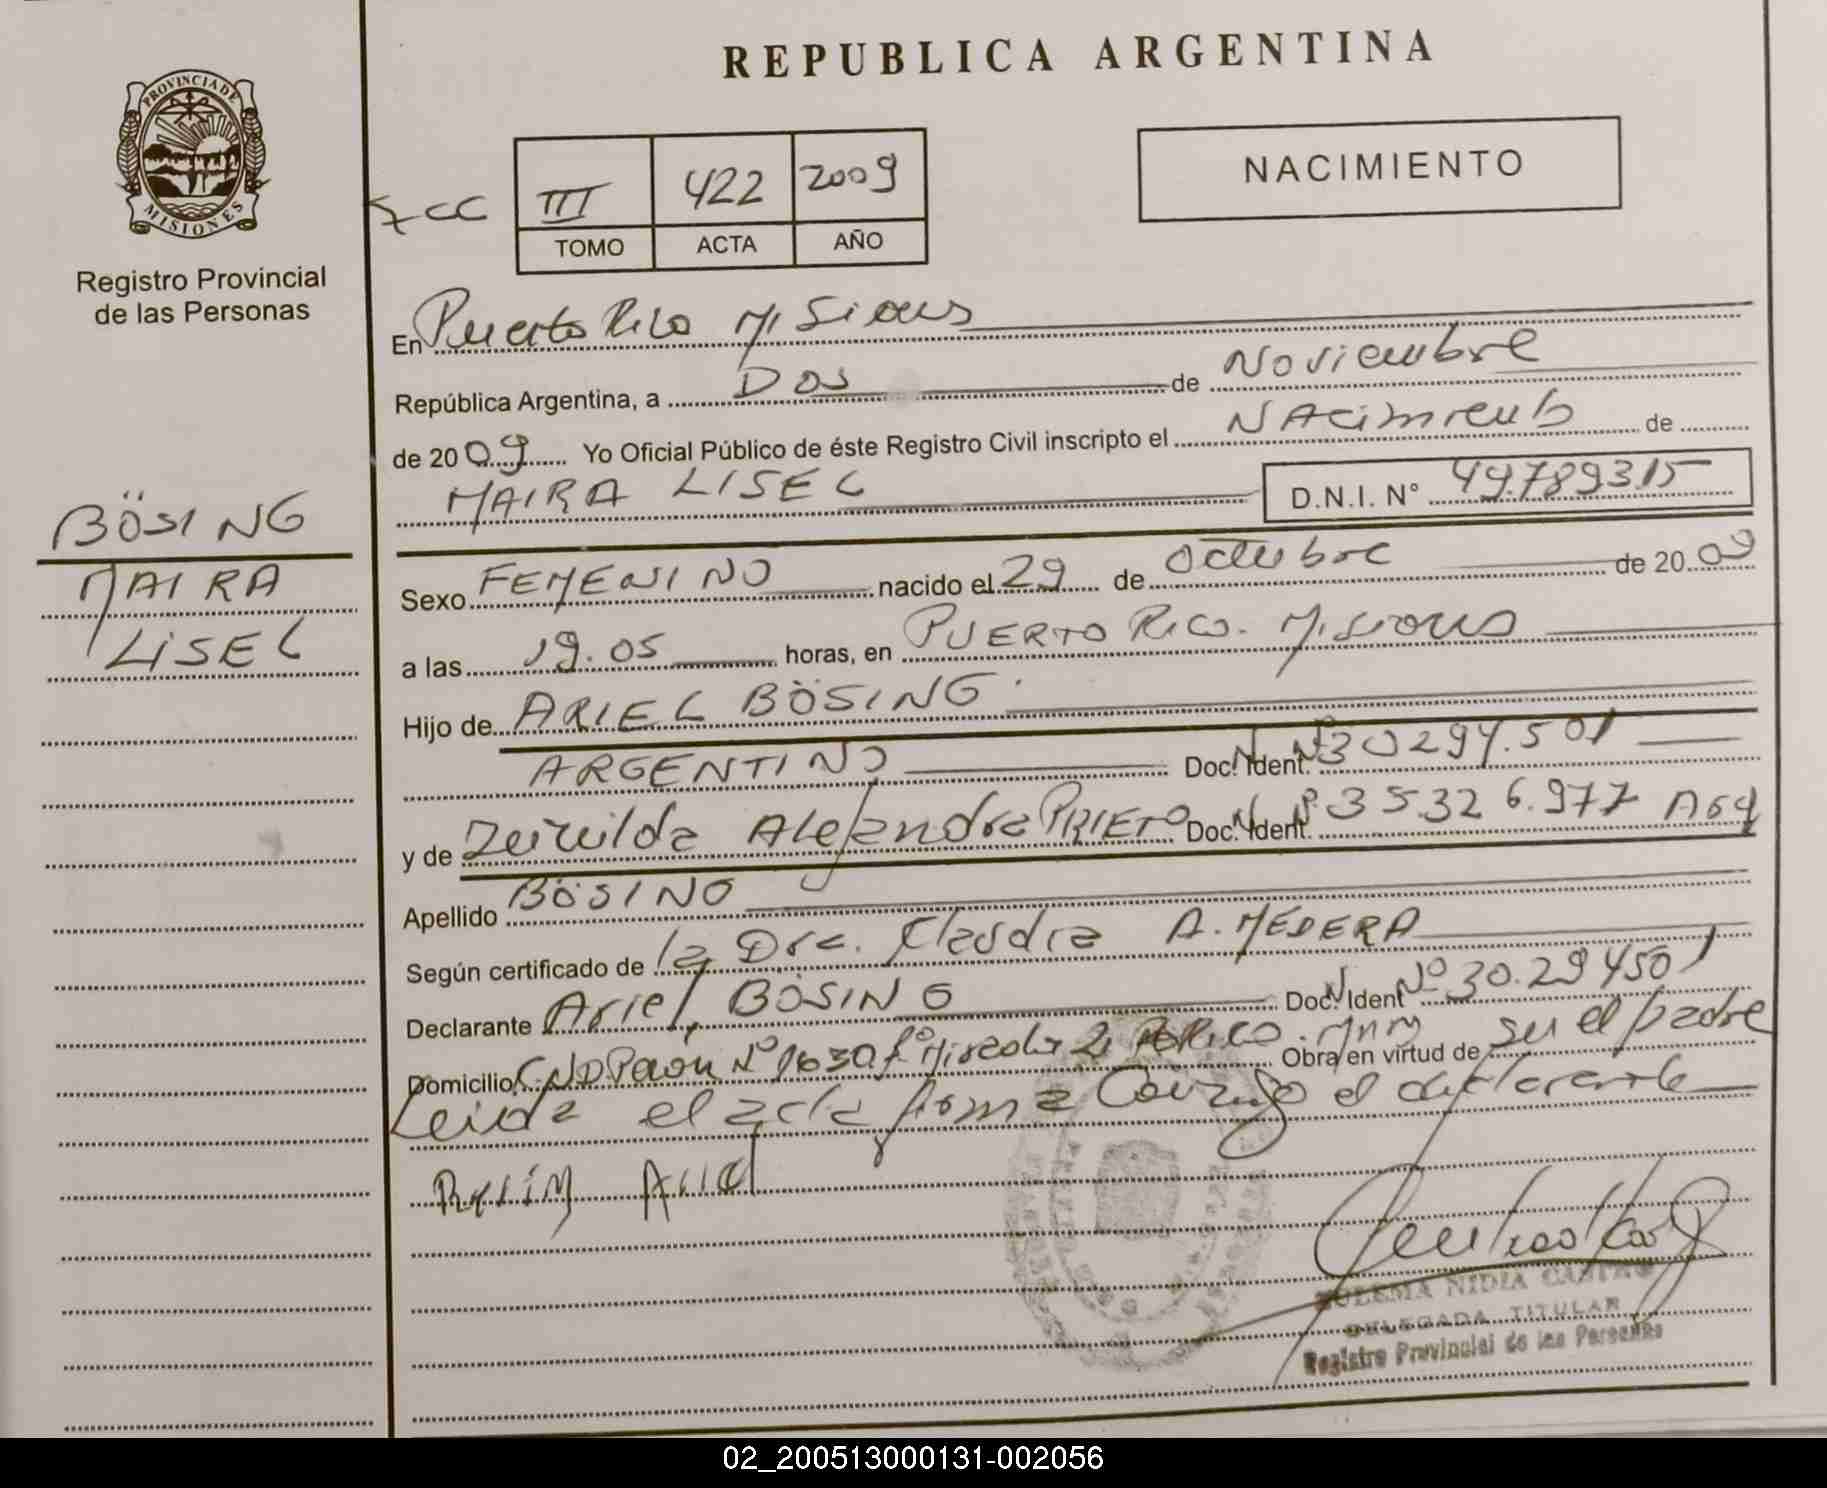 REPUBLICA ARGENTINA
PROVINCIA DE MISIONES
Registro Provincial
de las Personas
NACIMIENTO
III 422 2009
TOMO ACTA AÑO
En Puerto Rico Misiones
República Argentina, a Dos de Noviembre
de 2009 Yo Oficial Público de éste Registro Civil inscripto el NAcimiento de
MAIRA LISEL D.N.I. N° 49.789.315
BÖSING
MAIRA
LISEL
Sexo FEMENINO nacido el 29 de Octubre de 2009
a las 19.05 horas, en PUERTO RICO. Misiones
Hijo de ARIEL BÖSING
ARGENTINO Doc. Ident. N° 30294.501
y de Alejandra PRIETO Doc. Ident. N° 35.326.977 Arg
Apellido BÖSING
Según certificado de la Dra. Claudia A. MEDERA
Declarante Ariel BÖSING Doc. Ident N° 30.294501
Domicilio Obra en virtud de ser el padre
Leida el acta firma Conmigo el declarante
ZULEMA NIDIA CASTRO
DELEGADA TITULAR
Registro Provincial de las Personas
02_200513000131-002056